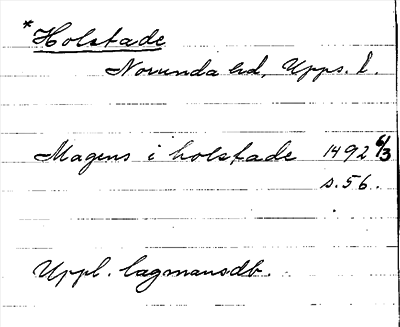 *Holstade
Norunda hd, Upps. l.
Magens i holstade 1492 6/3
s. 56.
Uppl. lagmansdb.